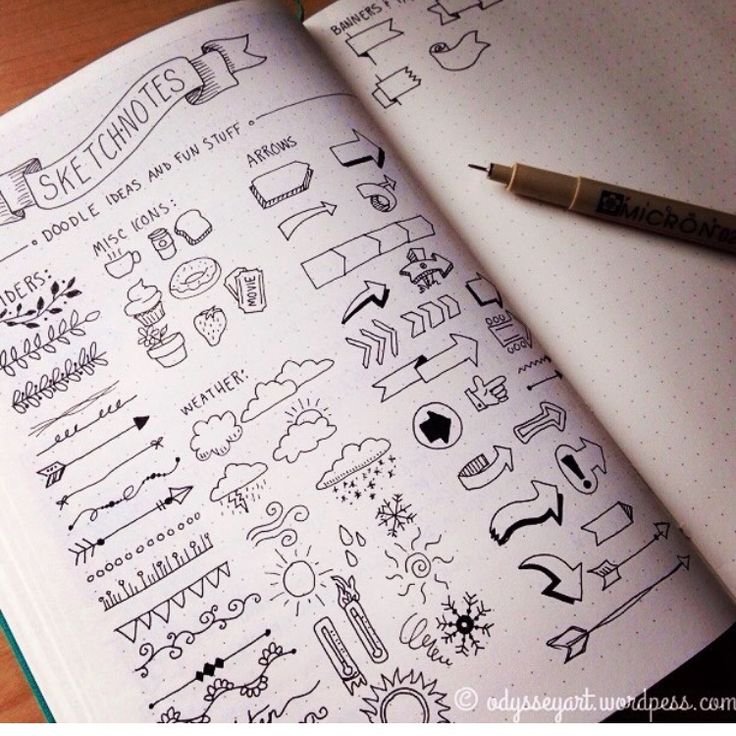 SKETCH·NOTES
DOODLE IDEAS AND FUN STUFF
IDERS:
MISC ICONS:
MOVIE
WEATHER:
ARROWS
BANNERS &
MICRON
© odysseyart.wordpess.com